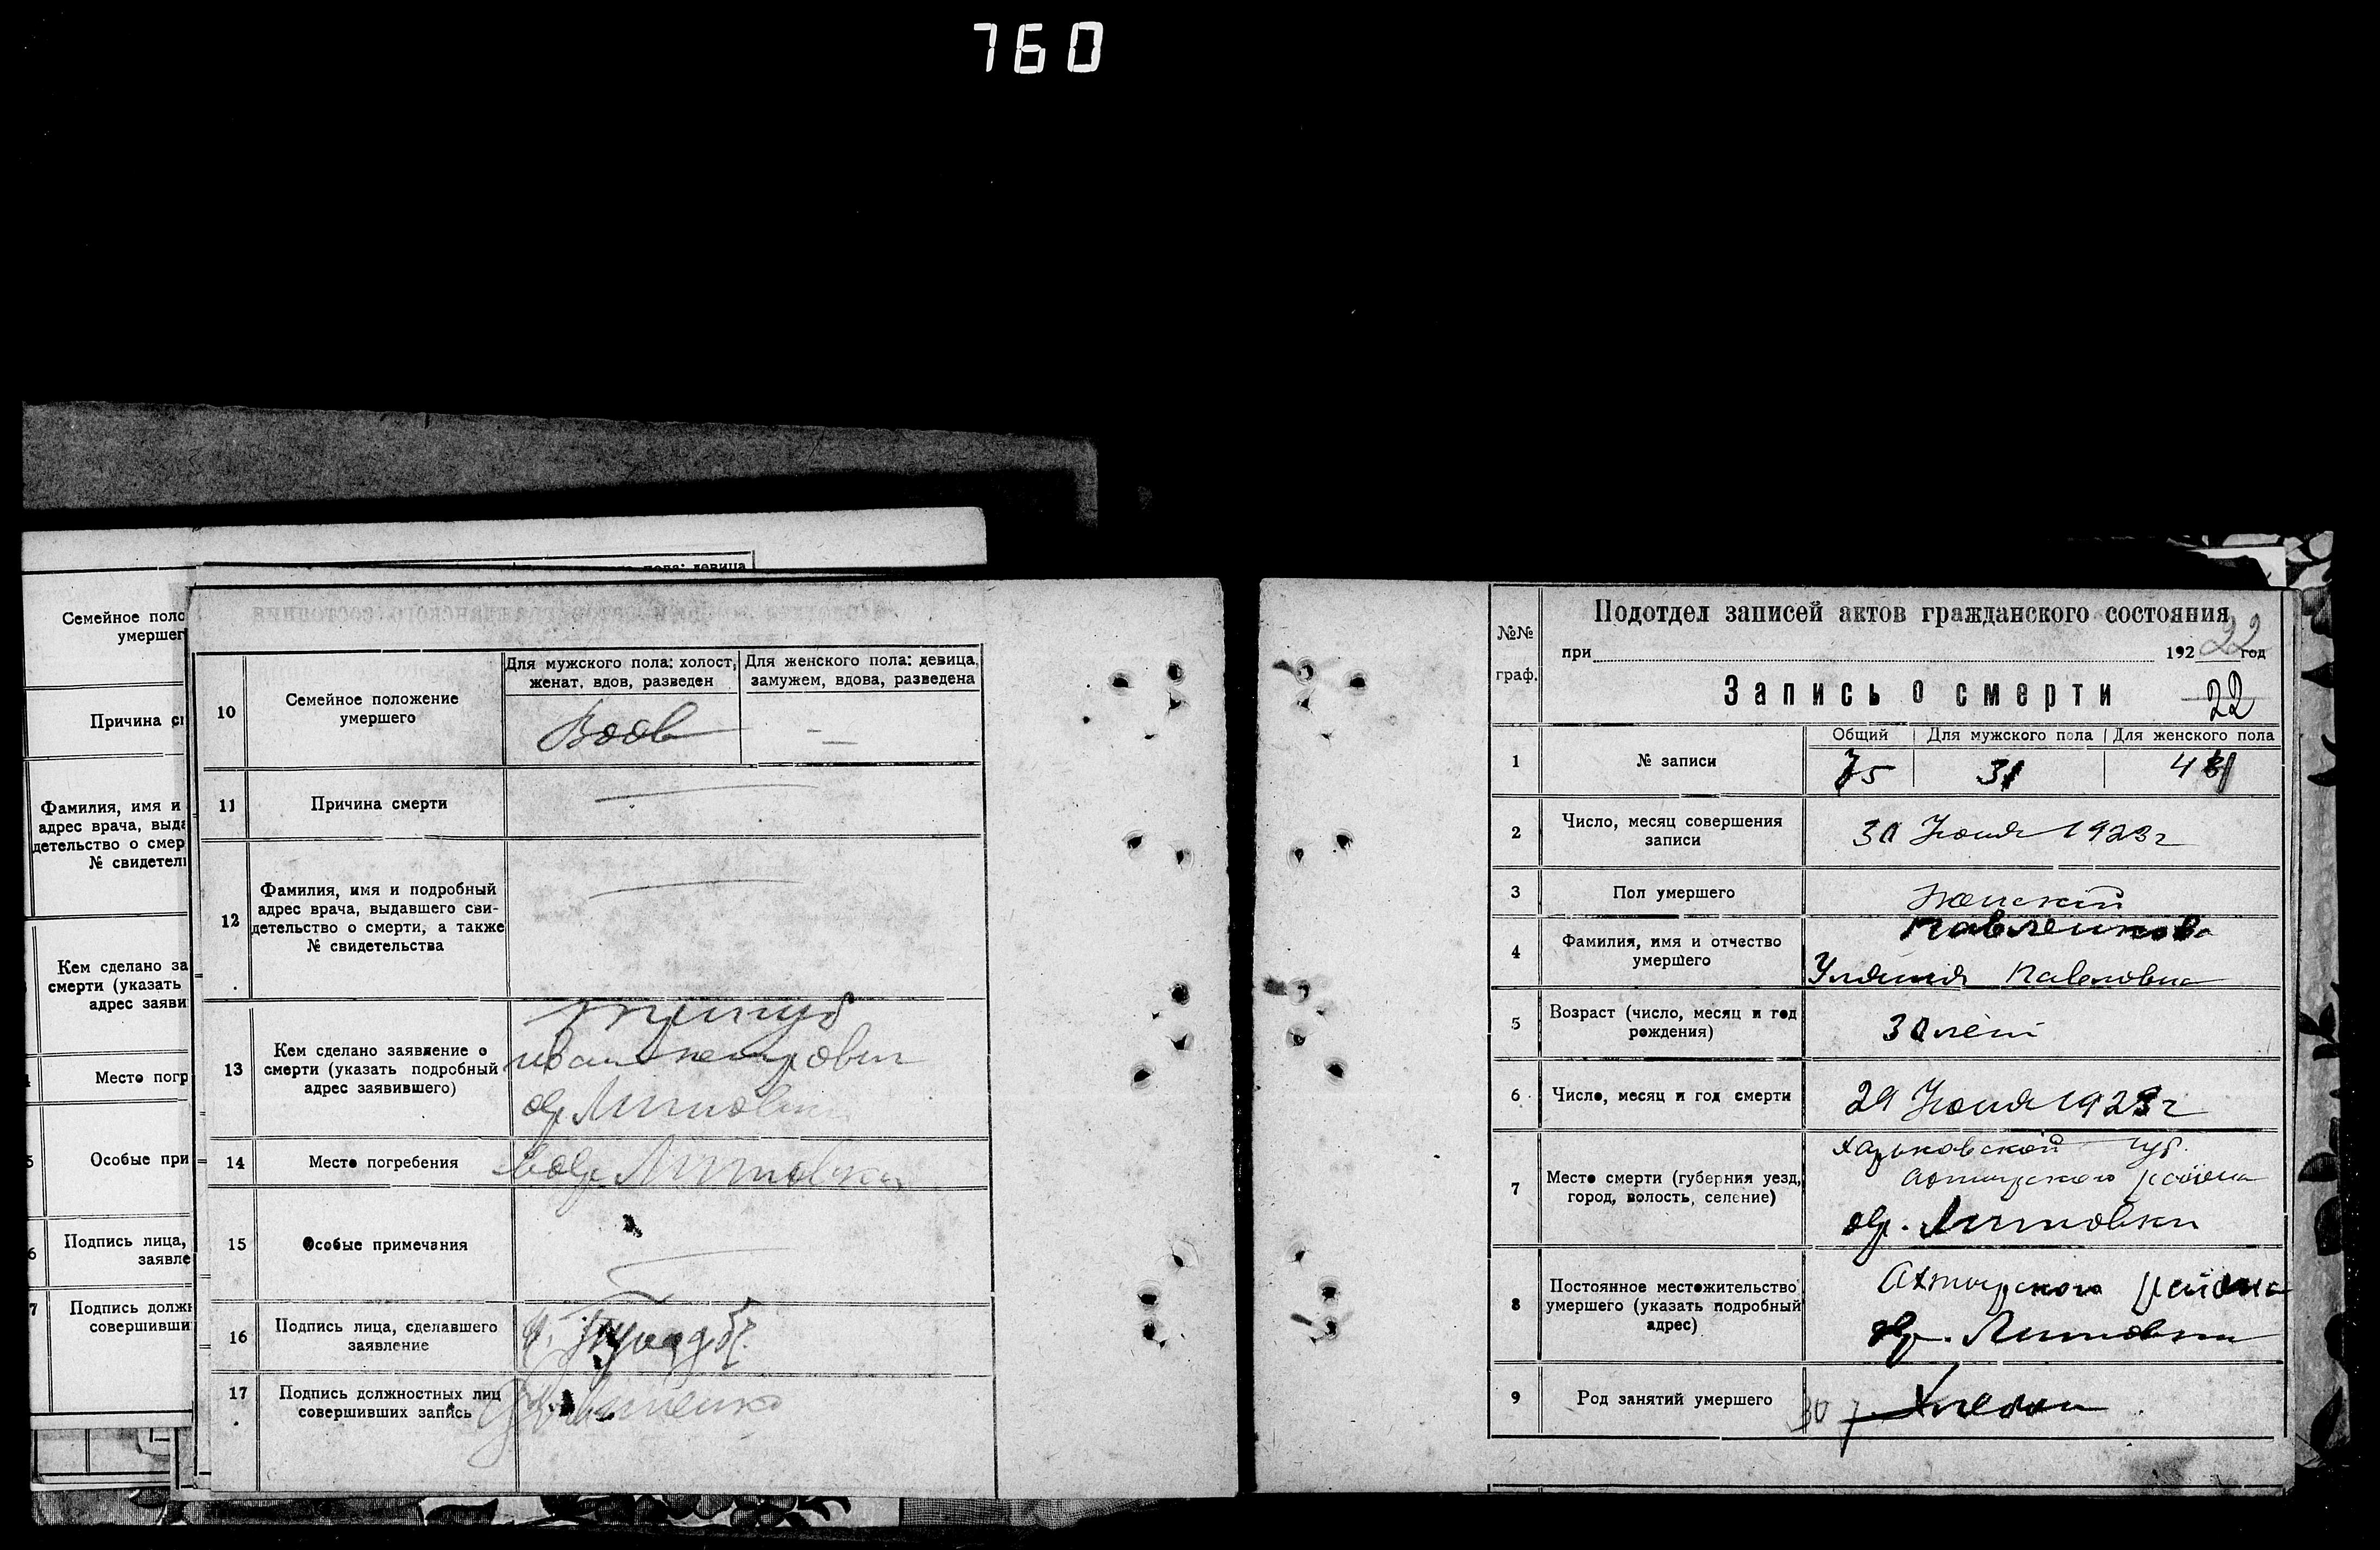 760
пола: девица
Семейное поло
умершег
Причина с
Фамилия, имя и
адрес врача, выда
детельство о смер
№ свидетел
Кем сделано за
смерти (указать
адрес заяви
Место погр
Особые при
Подпись лица,
заявле
7
Подпись должн
совершивши
10
Семейное положение
умершего
Для мужского пола: холост,
женат, вдов, разведен
Для женского пола: девица,
замужем, вдова, разведена
Вдов
11
Причина смерти
12
Фамилия, имя и подробный
адрес врача, выдавшего сви-
детельство о смерти, а также
№ свидетельства
13
Кем сделано заявление о
смерти (указать подробный
адрес заявившего)
Иван Петрович
Литовки
14
Место погребения
Литовки
15
Особые примечания
16
Подпись лица, сделавшего
заявление
17
Подпись должностных лиц
совершивших запись
№№
граф.
Подотдел записей актов гражданского состояния
при 192 22 год
Запись о смерти 22
1
№ записи
Общий
Для мужского пола
Для женского пола
75
31
2
Число, месяц совершения
записи
30 Июня 1923 г
3
Пол умершего
Женский
4
Фамилия, имя и отчество
умершего
Павленкова
Уляния Павловна
5
Возраст (число, месяц и год
рождения)
30 лет
6
Число, месяц и год смерти
29 Июня 1923 г
7
Место смерти (губерния уезд,
город, волость, селение)
Харьковской губ.
Ахтырского района
Литовки
8
Постоянное местожительство
умершего (указать подробный
адрес)
Ахтырского района
Литовки
9
Род занятий умершего
30